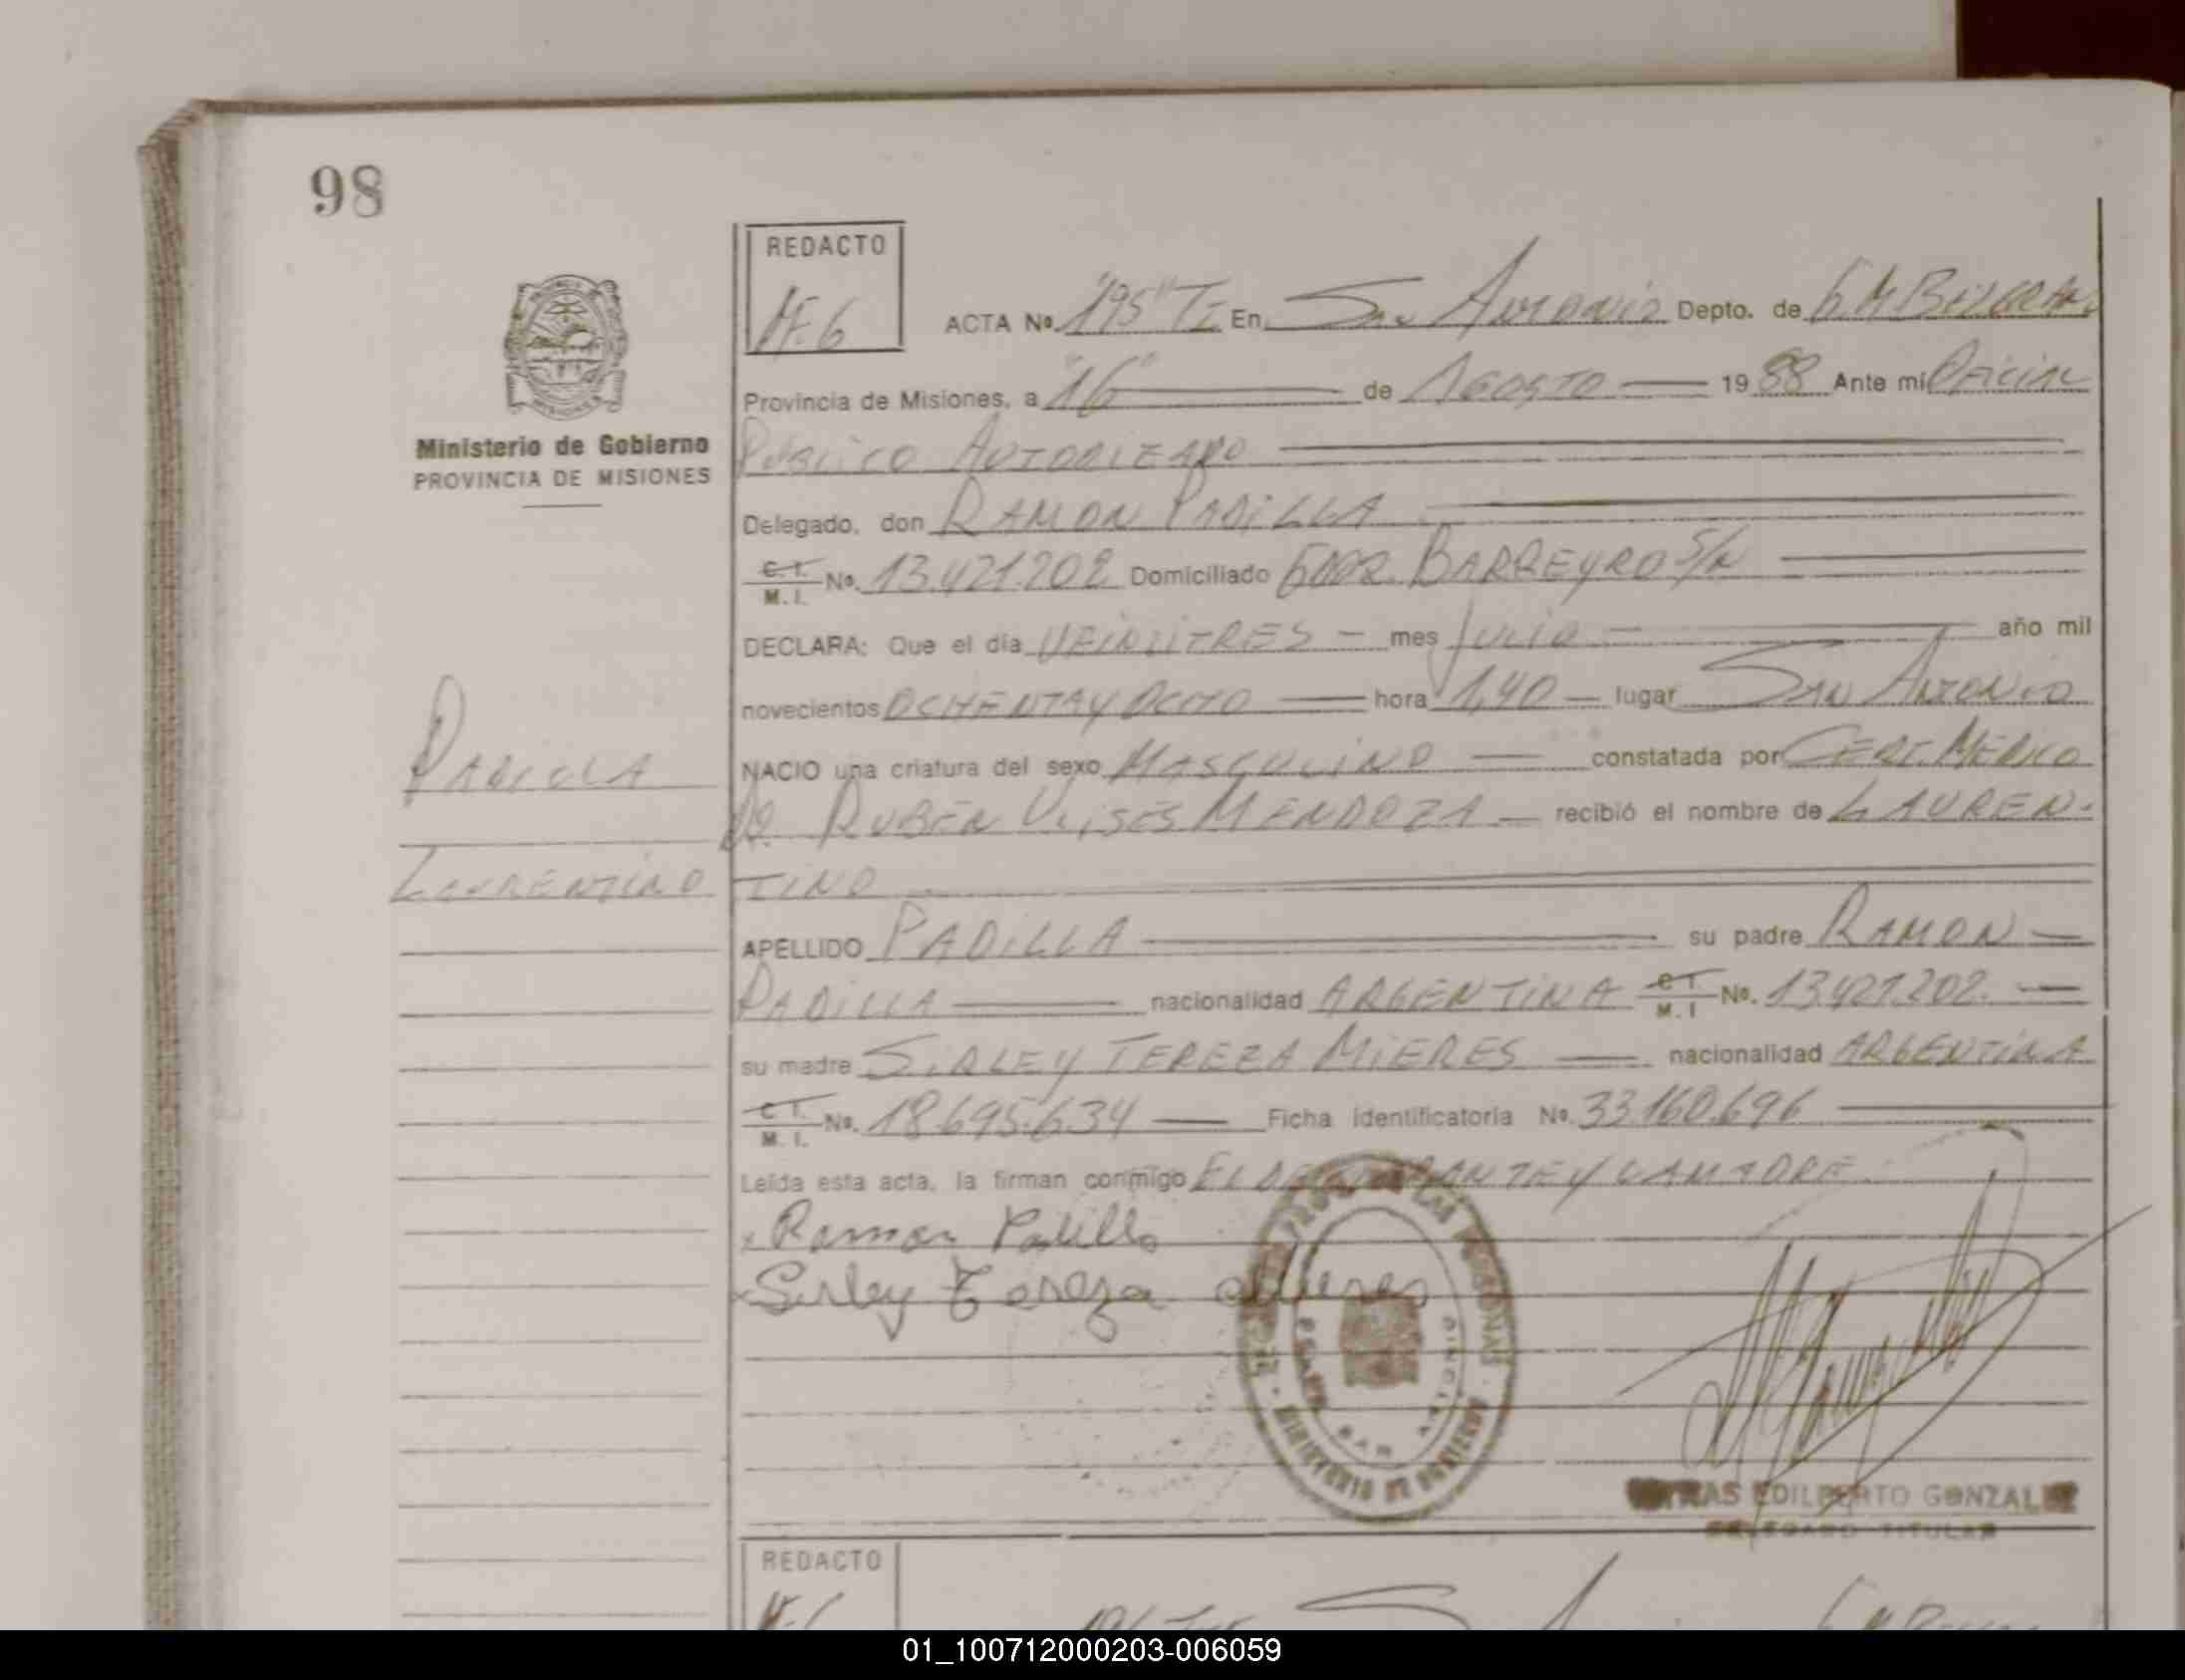 98
REDACTO
ACTA No. "195" TI En San Antonio Depto. de G.M BELGRANO
Provincia de Misiones, a "16" de AGOSTO 1988 Ante mi OFICIAL
Ministerio de Gobierno
PROVINCIA DE MISIONES
PUBLICO AUTORIZADO
Delegado, don RAMON PADILLA
C. I. M. I. No. 13.421.202 Domiciliado GOOR. BARREYRO S/N
DECLARA: Que el día VEINTITRES - mes JULIO año mil
novecientos OCHENTA y OCHO hora 1,40 lugar SAN ANTONIO
PADILLA
NACIO una criatura del sexo MASCULINO constatada por CERT. MEDICO
DR. RUBEN ULISES MENDOZA recibió el nombre de LAUREN-
LAURENTINO
TINO
APELLIDO PADILLA su padre RAMON
PADILLA nacionalidad ARGENTINA C I. M. I No. 13.421.202.
su madre SIRLEY TEREZA MIERES nacionalidad ARGENTINA
C I. M. I. No. 18.695.634 Ficha identificatoria No. 33.160.696
Leída esta acta, la firman conmigo EL DECLARANTE Y LA MADRE.
x Ramon Padilla
x Sirley Tereza Mieres
MINISTERIO DE GOBIERNO
SAN ANTONIO
EDILBERTO GONZALEZ
DELEGADO TITULAR
REDACTO
01_100712000203-006059